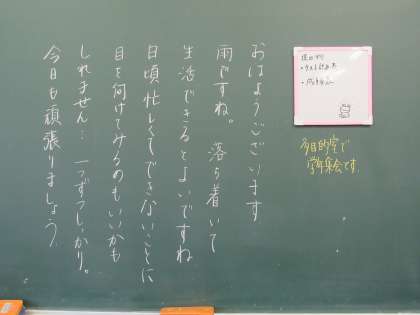 おはようございます
雨ですね。 落ち着いて
生活できるとよいですね
日頃忙しくてできないことに
目を向けてみるのもいいかも
しれません… 一つずつしっかり。
今日も頑張りましょう。
多目的室で
学年集会です。